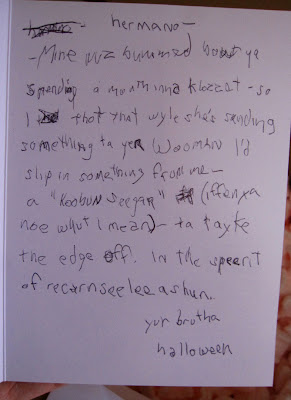 hermano—
—Mine wuz bummed bout ya
spending a month inna klozzet - so
I thot that wyle she's sending
something ta yer Woomun I'd
slip in something from me—
a "Koobun Seegar" (iffenya
noe whut I mean)— ta tayke
the edge off. In the speert
of recarnseeleeashun.
yur brutha
halloween